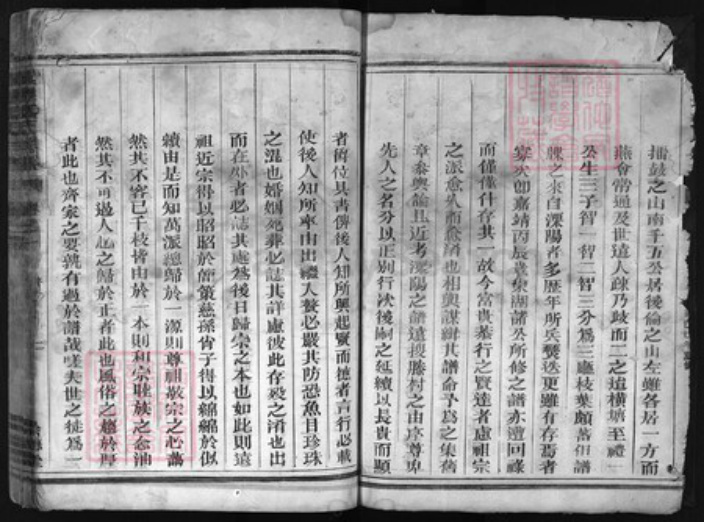 擂鼓之山南千五公居後倫之山左雖各居一方而
燕會常通及世遠人疎乃歧而二之遠橫塘至禮一
公生三子智一智二智三分為三廳枝葉頗蕃但譜
牒之來自溧陽者多歷年所兵燹迭更雖有存焉者
寡矣即嘉靖丙辰東湖諸公所修之譜亦遭回祿
而僅僅什存其一故今富貴恭行之賢達者慮祖宗
之派愈久而愈淆也相與謀緝其譜命予為之集舊
章參輿論且近考溧陽之譜遠搜勝村之由序尊卑
先人之名分以正別行次後嗣之延續以長貴而顯
者爵位具書俾後人知所興起賢而德者言行必載
使後人知所率由出繼入贅必嚴其防恐魚目珍珠
之混也婚姻死葬必誌其詳慮彼此存歿之淆也出
而在外者必誌其處為後日歸宗之本也如此則遠
祖近宗得以昭昭於簡策慈孫肖子得以綿綿於似
續由是而知萬派總歸於一源則尊祖敬宗之心藹
然其不容已千枝皆由於一本則和宗睦族之念油
然其不可遏人心之歸於正者此也風俗之趨於厚
者此也齊家之要孰有過於譜哉嗟夫世之徒為一